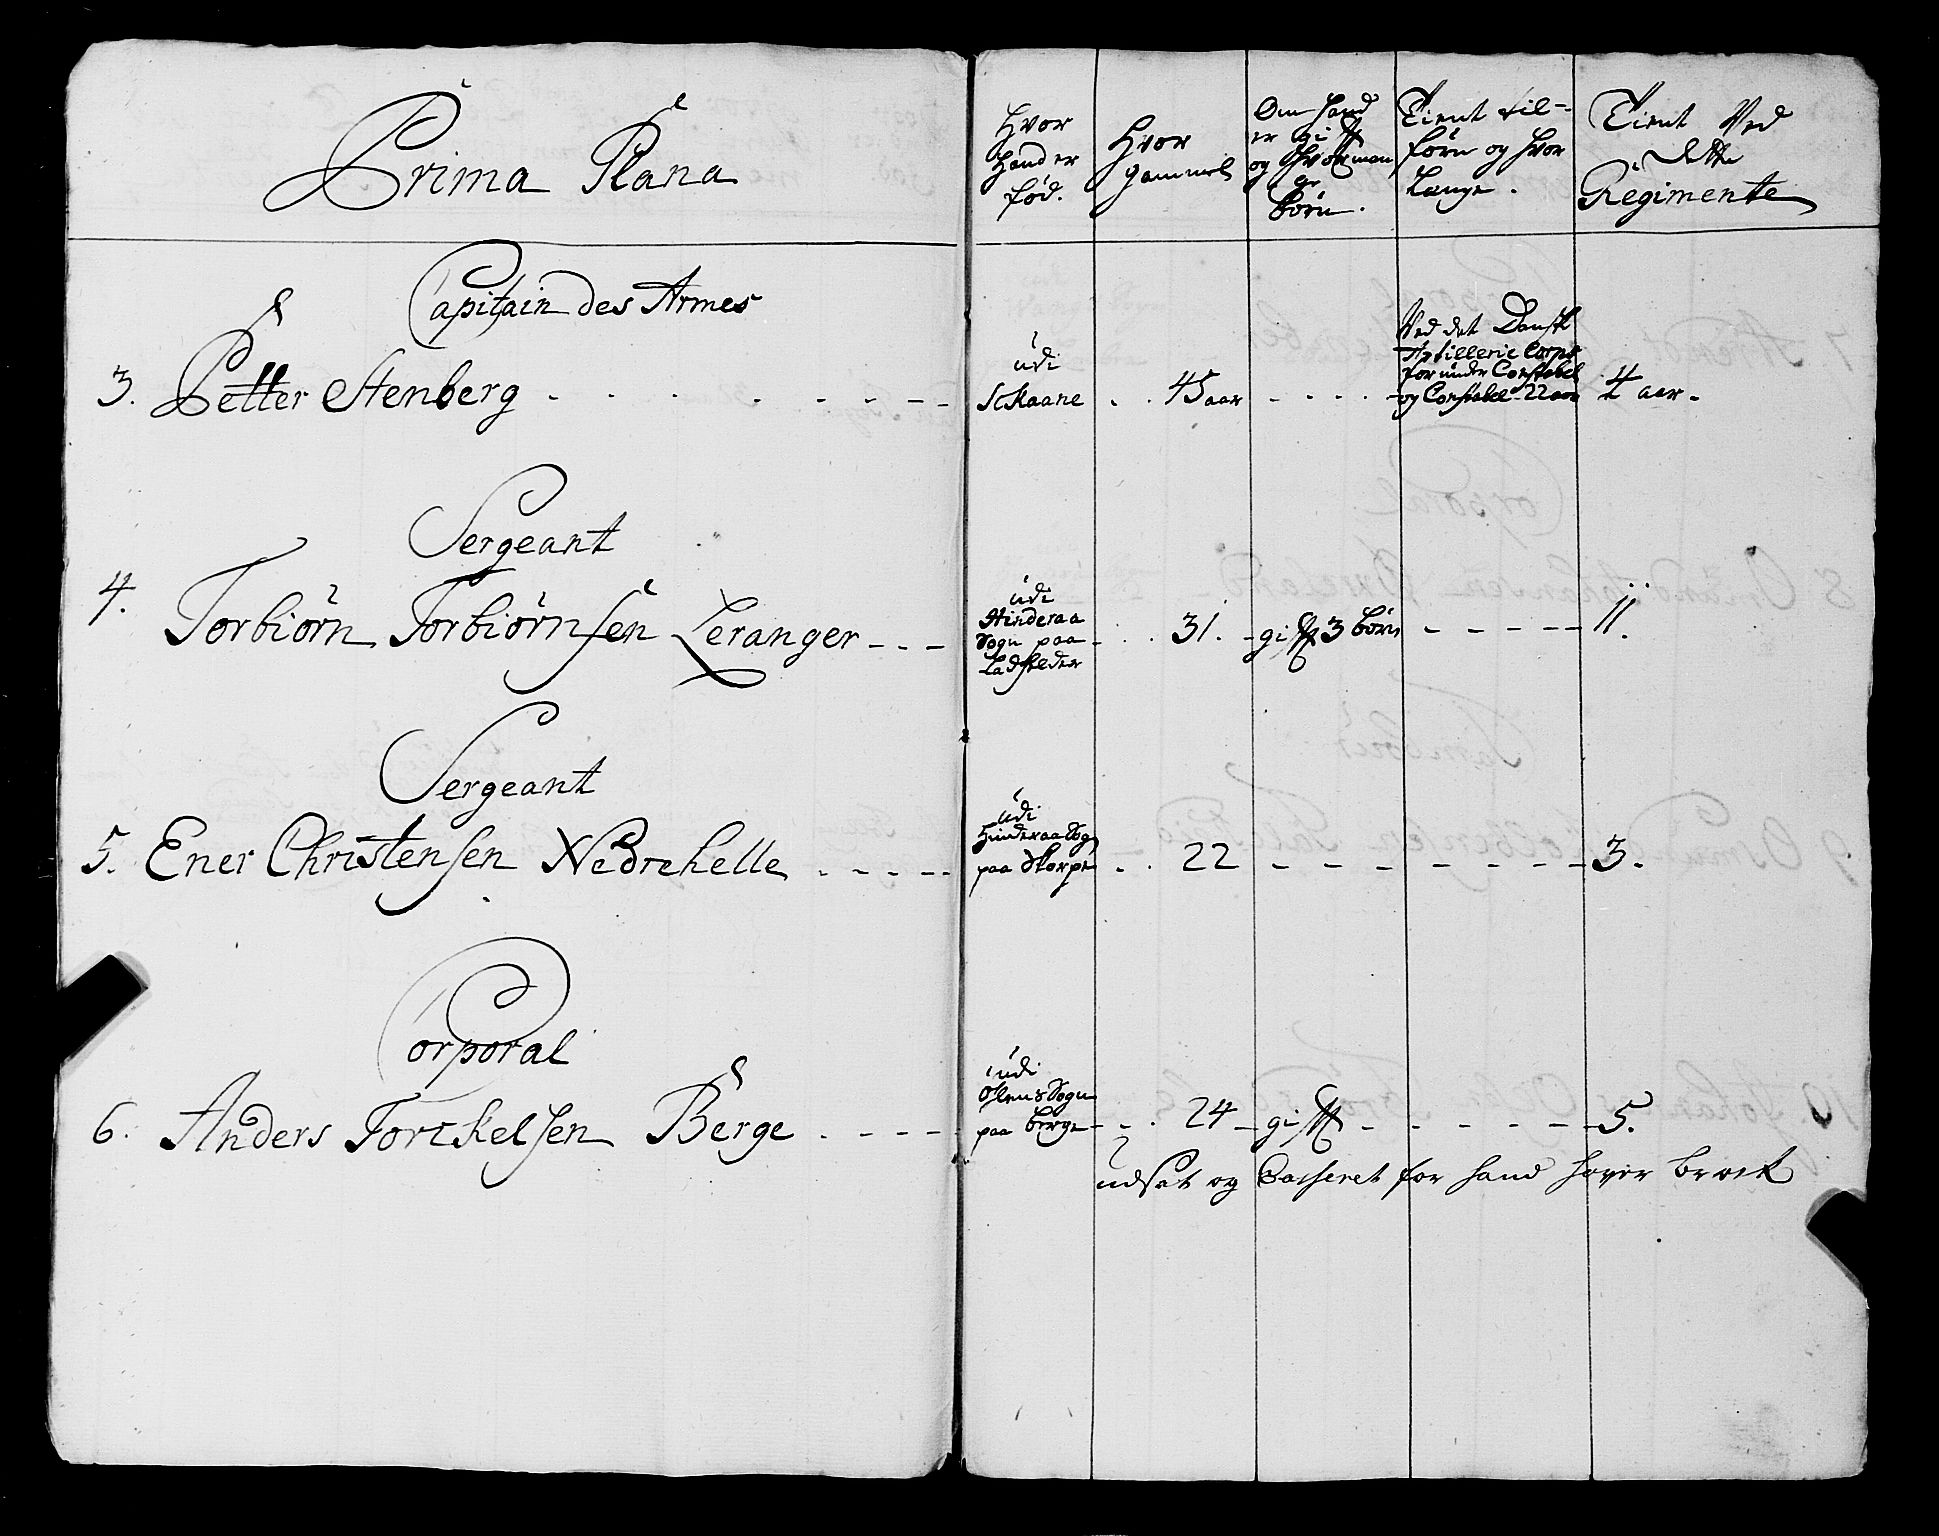 Prima Plana
Hvor
Hand er
fød.
Hvor
gammel
Om Hand
er gifft
og Hvor man
ge
börn.
Tient til-
förn og hvor
Lange.
Tient Ved
dette
Regimente
Capitain des Armes
3. Petter Stenberg
udi
Skaane
45 aar
Ved det Danske
Artillerie Corps
for under Constabel
og Constabel 22 aar
4 aar.
Sergeant
4. Torbiörn Torbiörnsen Leranger
udi
Hinderaa
Sogn paa
Ladsteder
31.
gifft 3 börn
11.
Sergeant
5. Ener Christensen Nedrehelle
udi
Hinderaa Sogn
paa Skorpe
22
3.
Corporal
6. Anders Torckelsen Berge
udi
Ølens Sogn
paa Berge
24
gifft
5.
udsat og Casseret for hand haver brock